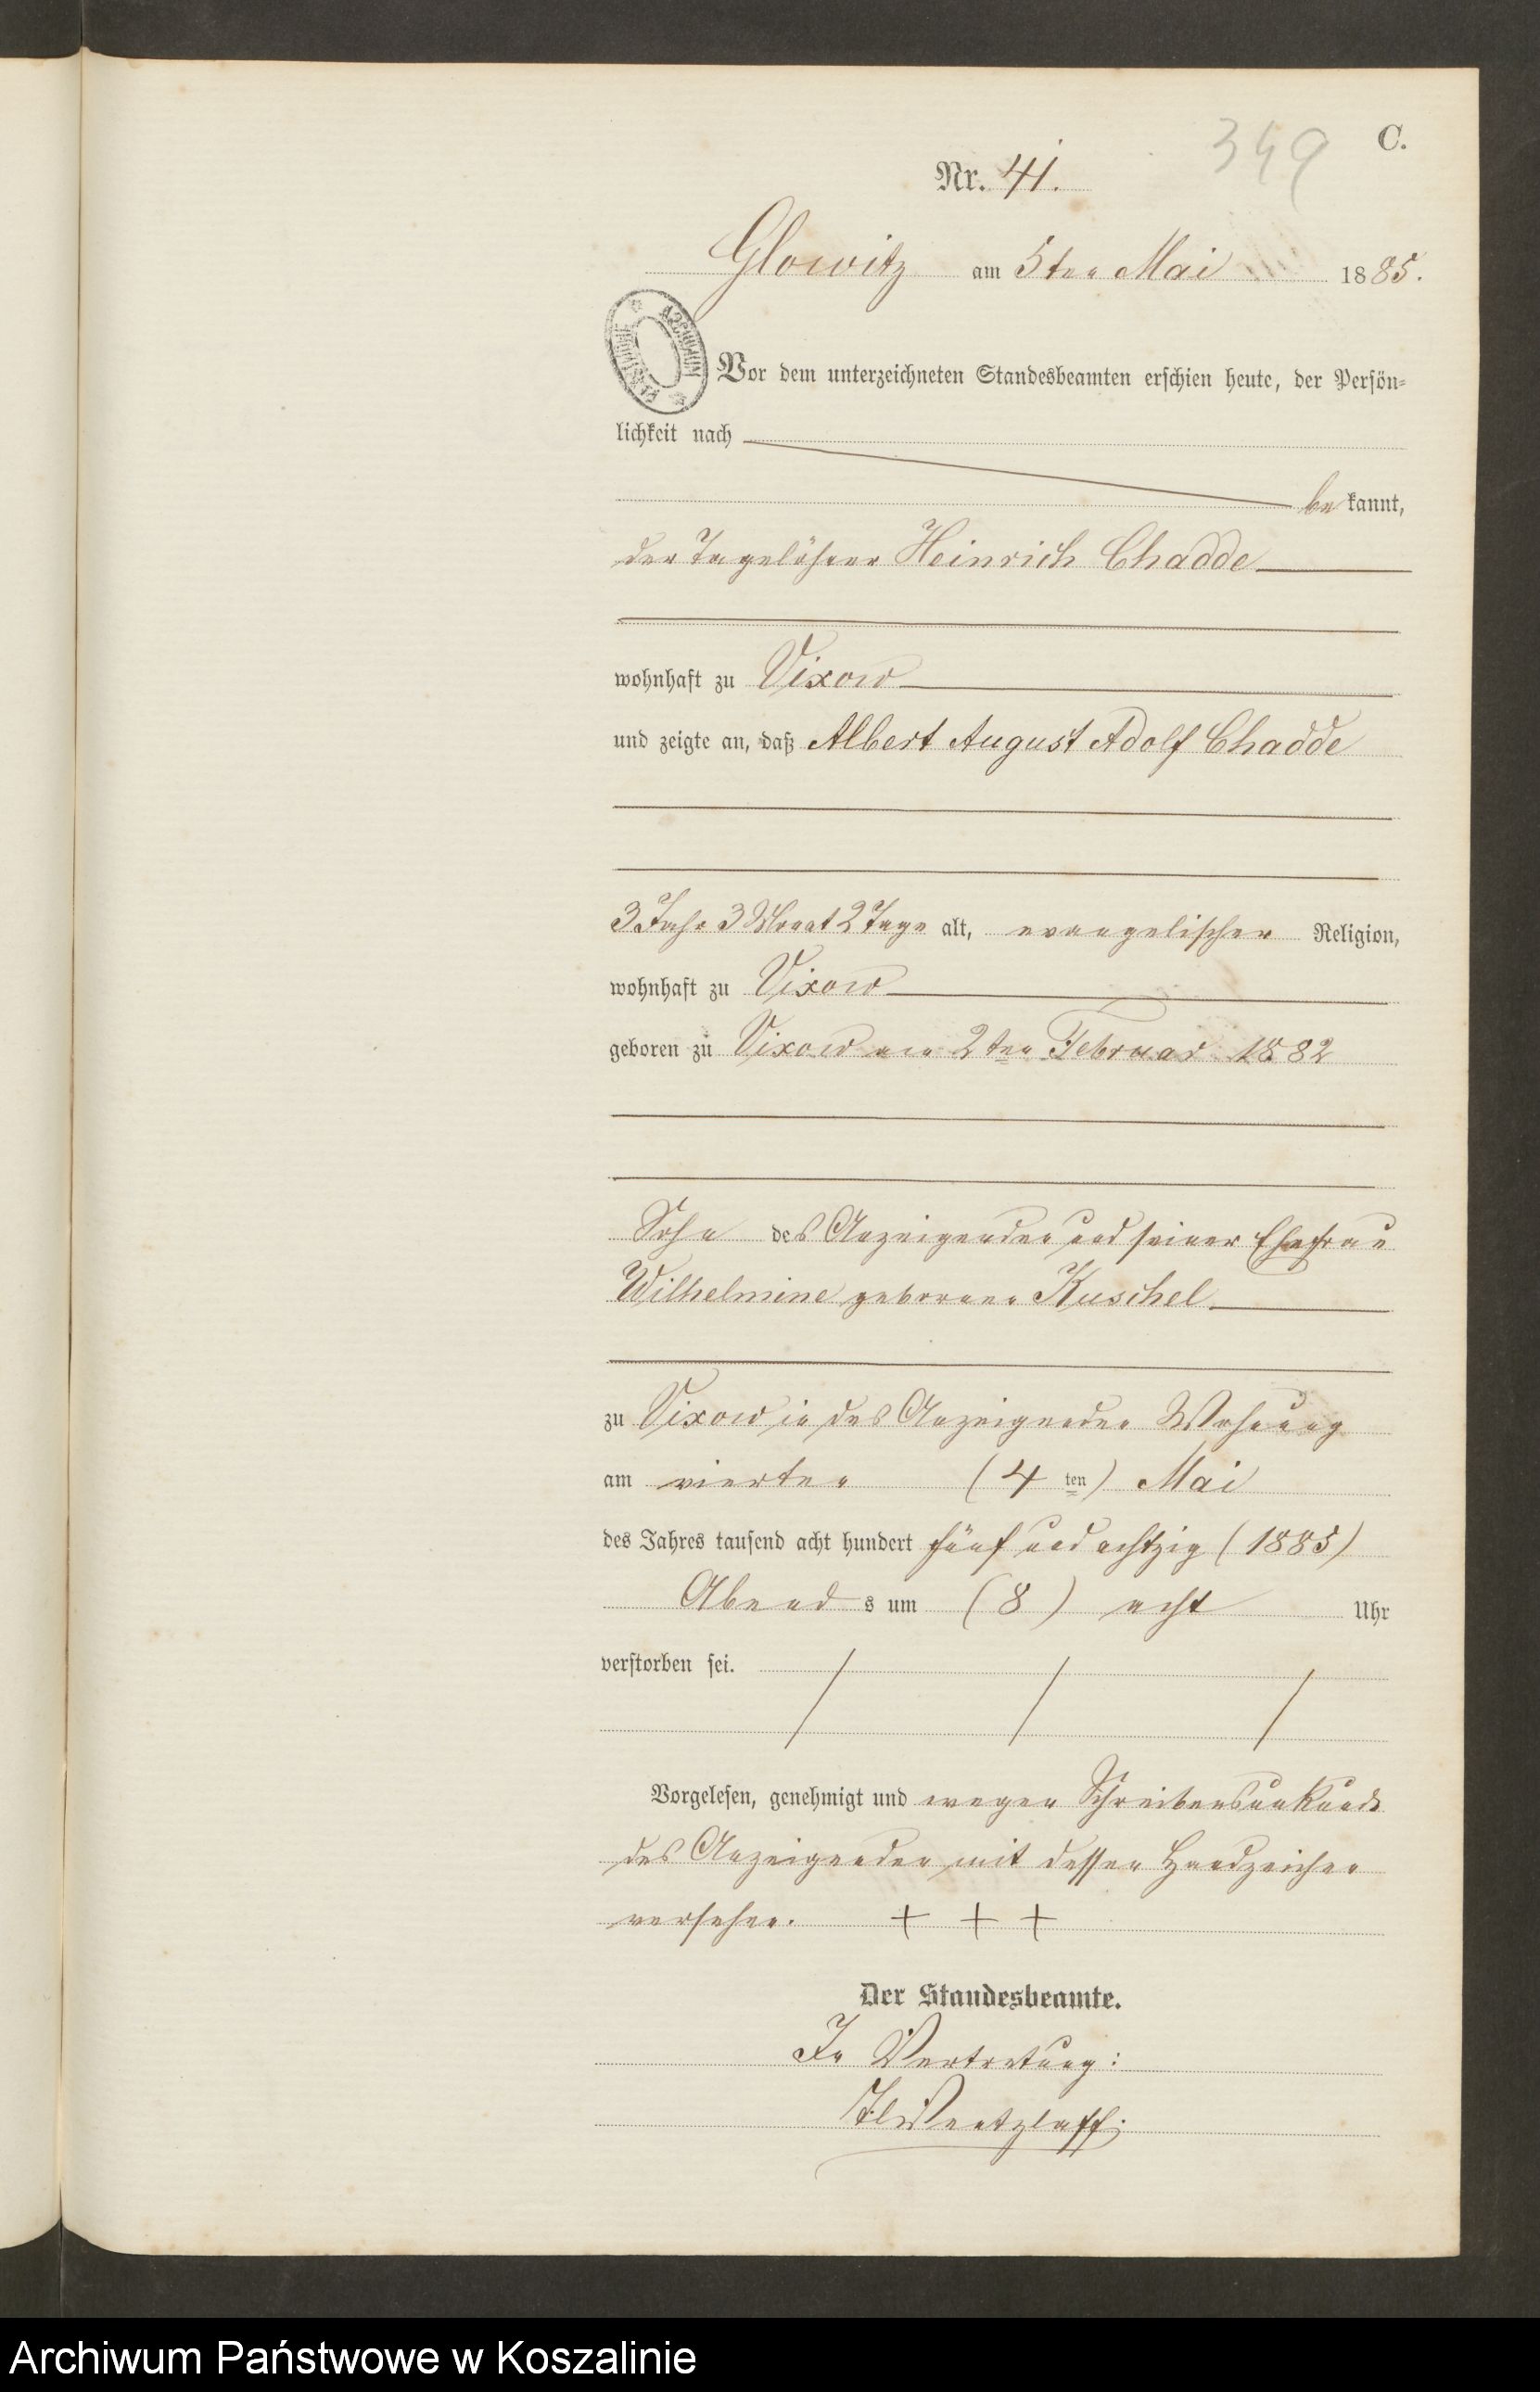 349
C.
Nr. 41.
Glowitz am 5ten Mai 1885.
Vor dem unterzeichneten Standesbeamten erschien heute, der Persön-
lichkeit nach
bekannt,
der Tagelöhner Heinrich Chadde
wohnhaft zu Vixow
und zeigte an, daß Albert August Adolf Chadde
3 Jahr 3 Monat 2 Tage alt, evangelischer Religion,
wohnhaft zu Vixow
geboren zu Vixow am 2ten Februar 1882
Sohn des Anzeigenden und seiner Ehefrau
Wilhelmine geborene Kuschel
zu Vixow in des Anzeigenden Wohnung
am vierten (4 ten) Mai
des Jahres tausend acht hundert fünf und achtzig (1885)
Abends um (8) acht Uhr
verstorben sei.
Vorgelesen, genehmigt und wegen Schreibensunkunde
des Anzeigenden mit dessen Handzeichen
versehen. + + +
Der Standesbeamte.
In Vertretung:
Archiwum Państwowe w Koszalinie